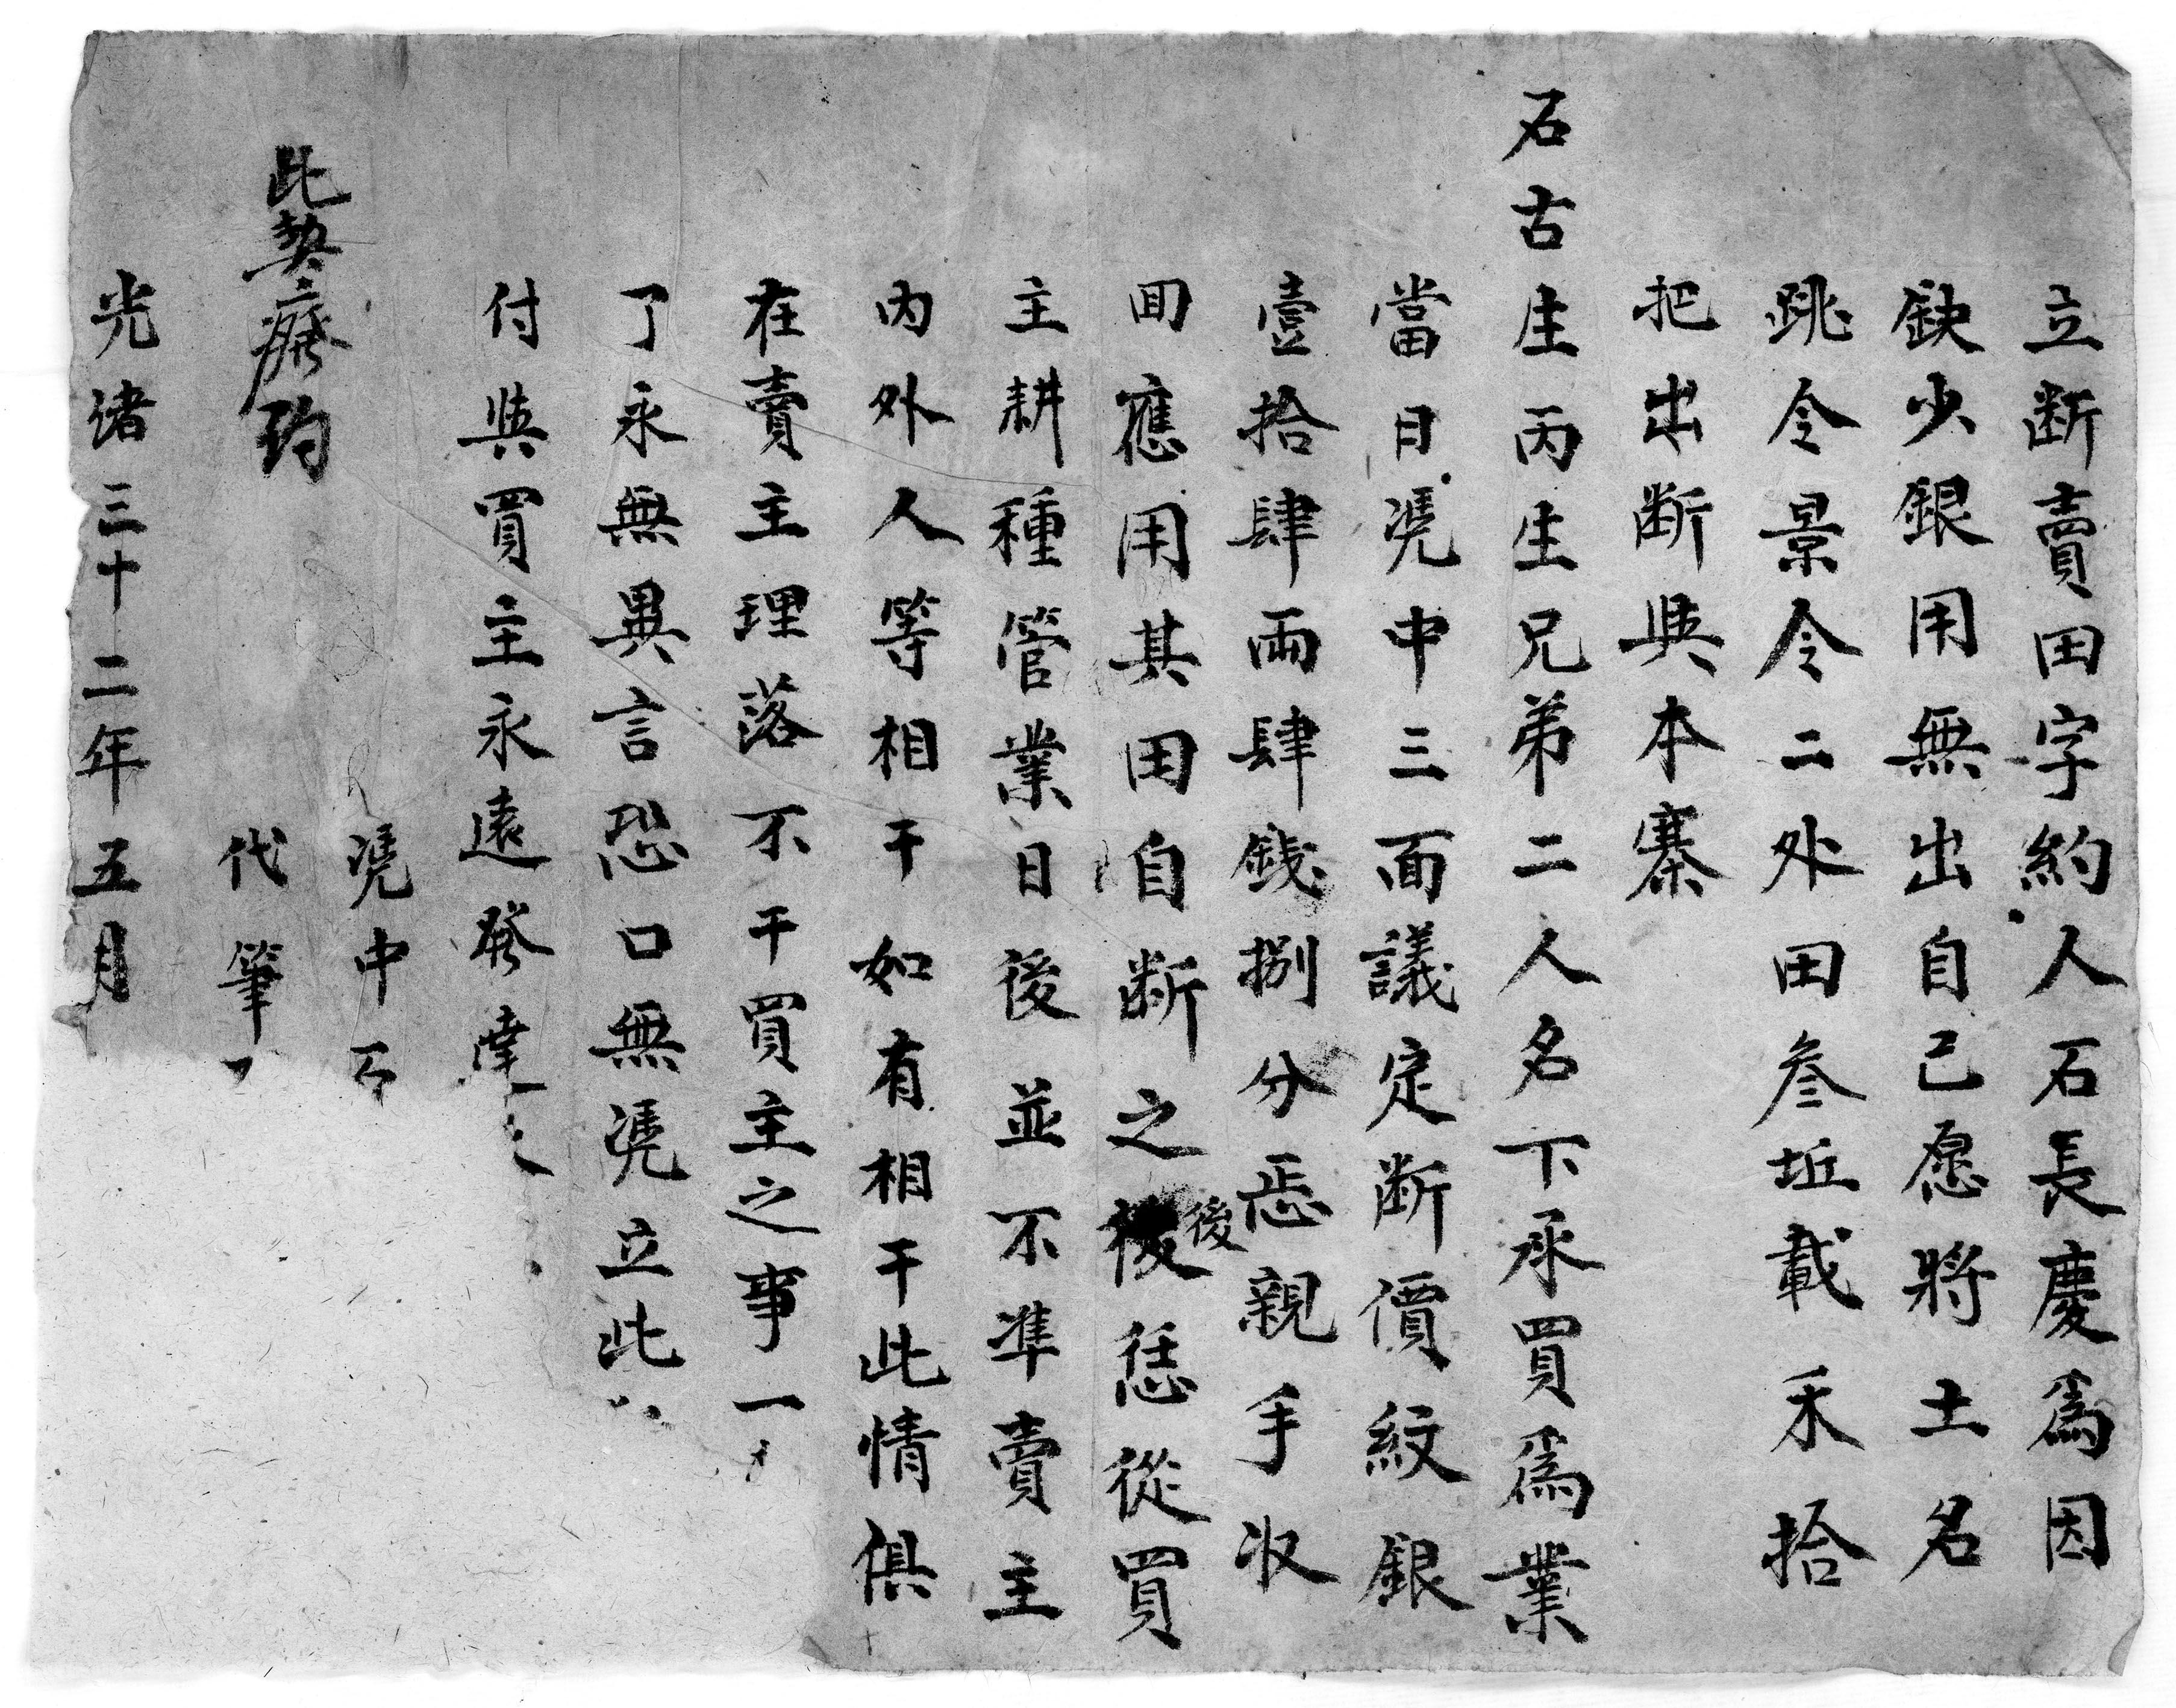 立断賣田字約人石長慶爲因
缺少銀用無出自己愿將土名
跳令景令二外田叁坵載禾拾
把出断與本寨
石古生丙生兄弟二人名下承買爲業
當日凴中三面議定断價紋銀
壹拾肆兩肆錢捌分恁親手収
囬應用其田自断之後恁從買
主耕種管業日後並不準賣主
内外人等相干如有相干此情俱
在賣主理落不干買主之事一
了永無異言恐口無凴立此
付與買主永遠發達
凴中石
代筆
此契廢約
光緒三十二年五月